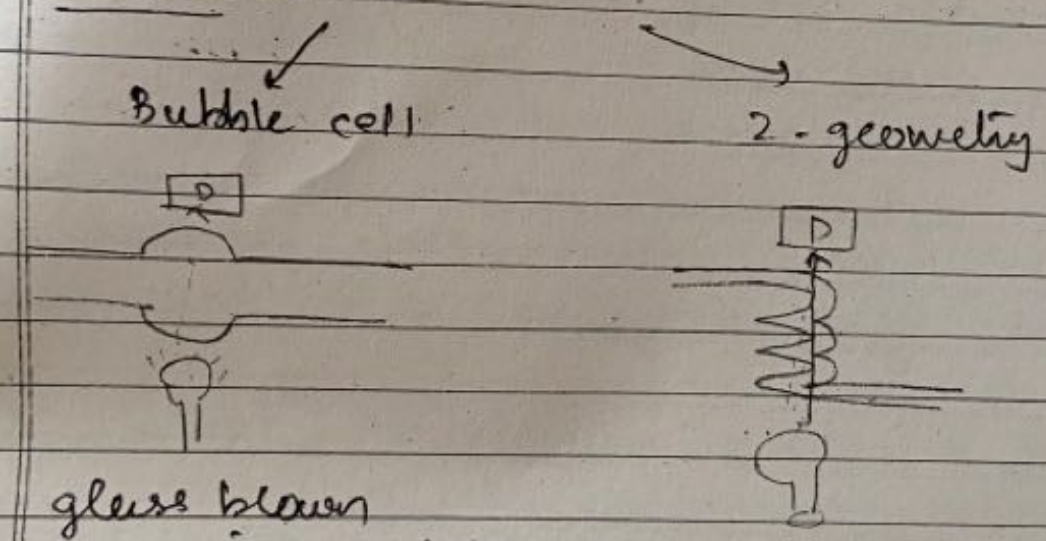 Bubble cell
2-geometry
D
D
glass blown